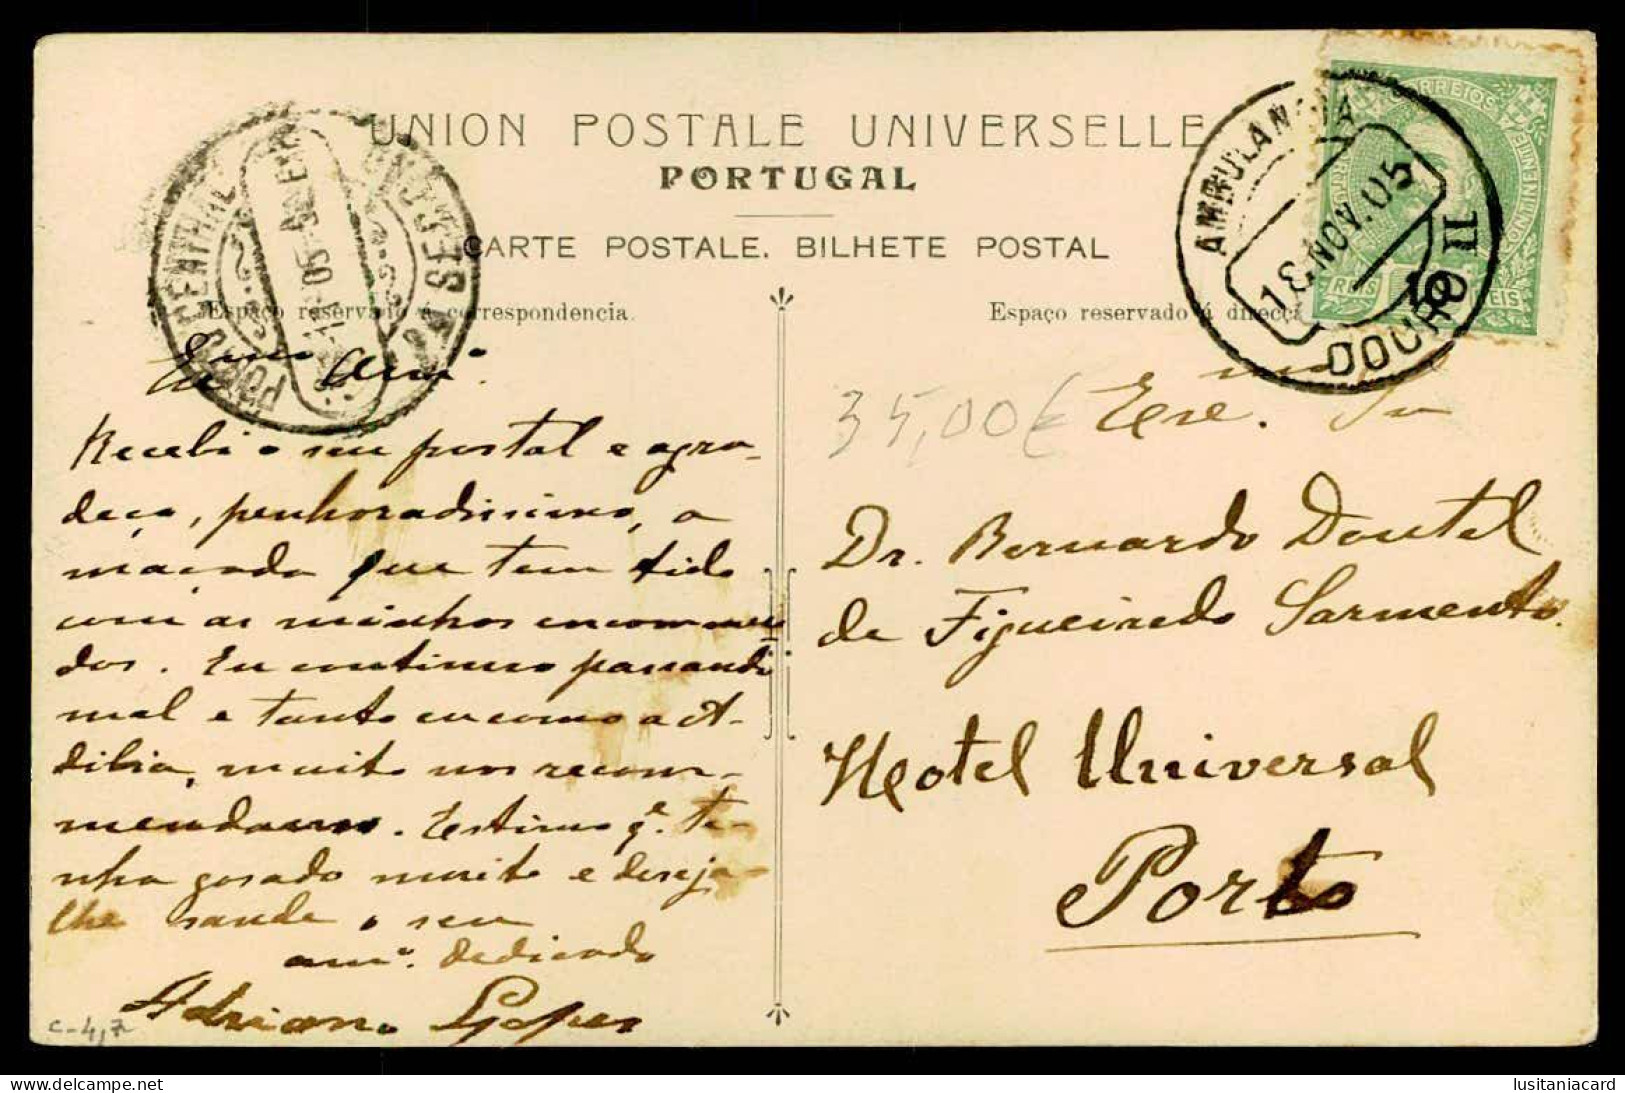 UNION POSTALE UNIVERSELLE
PORTUGAL
CARTE POSTALE. BILHETE POSTAL
Espaço reservado á correspondencia.
Espaço reservado á direcç
PORTO CENTRAL
1ª SECÇÃO
AMBULANCIA
13 NOV. 05
II
DOURO
CORREIOS
CONTINENTE
REIS
Exmo Amo.
Recebi o seu postal e agra-
deço, penhoradissimo, a
maçada que tem tido
com as minhas encommen
das. Eu continuo passando
mal e tanto eu como a A-
dilia, muito nos recom-
mendamos. Estimo q.e te-
nha gosado muito e deseja-
lhe saude o seu
amo. dedicado
Adriano Lopes
c-4,7
35,00€
Exmo. Snr
Dr. Bernardo Doutel
de Figueiredo Sarmento.
Hotel Universal
Porto
lusitaniacard